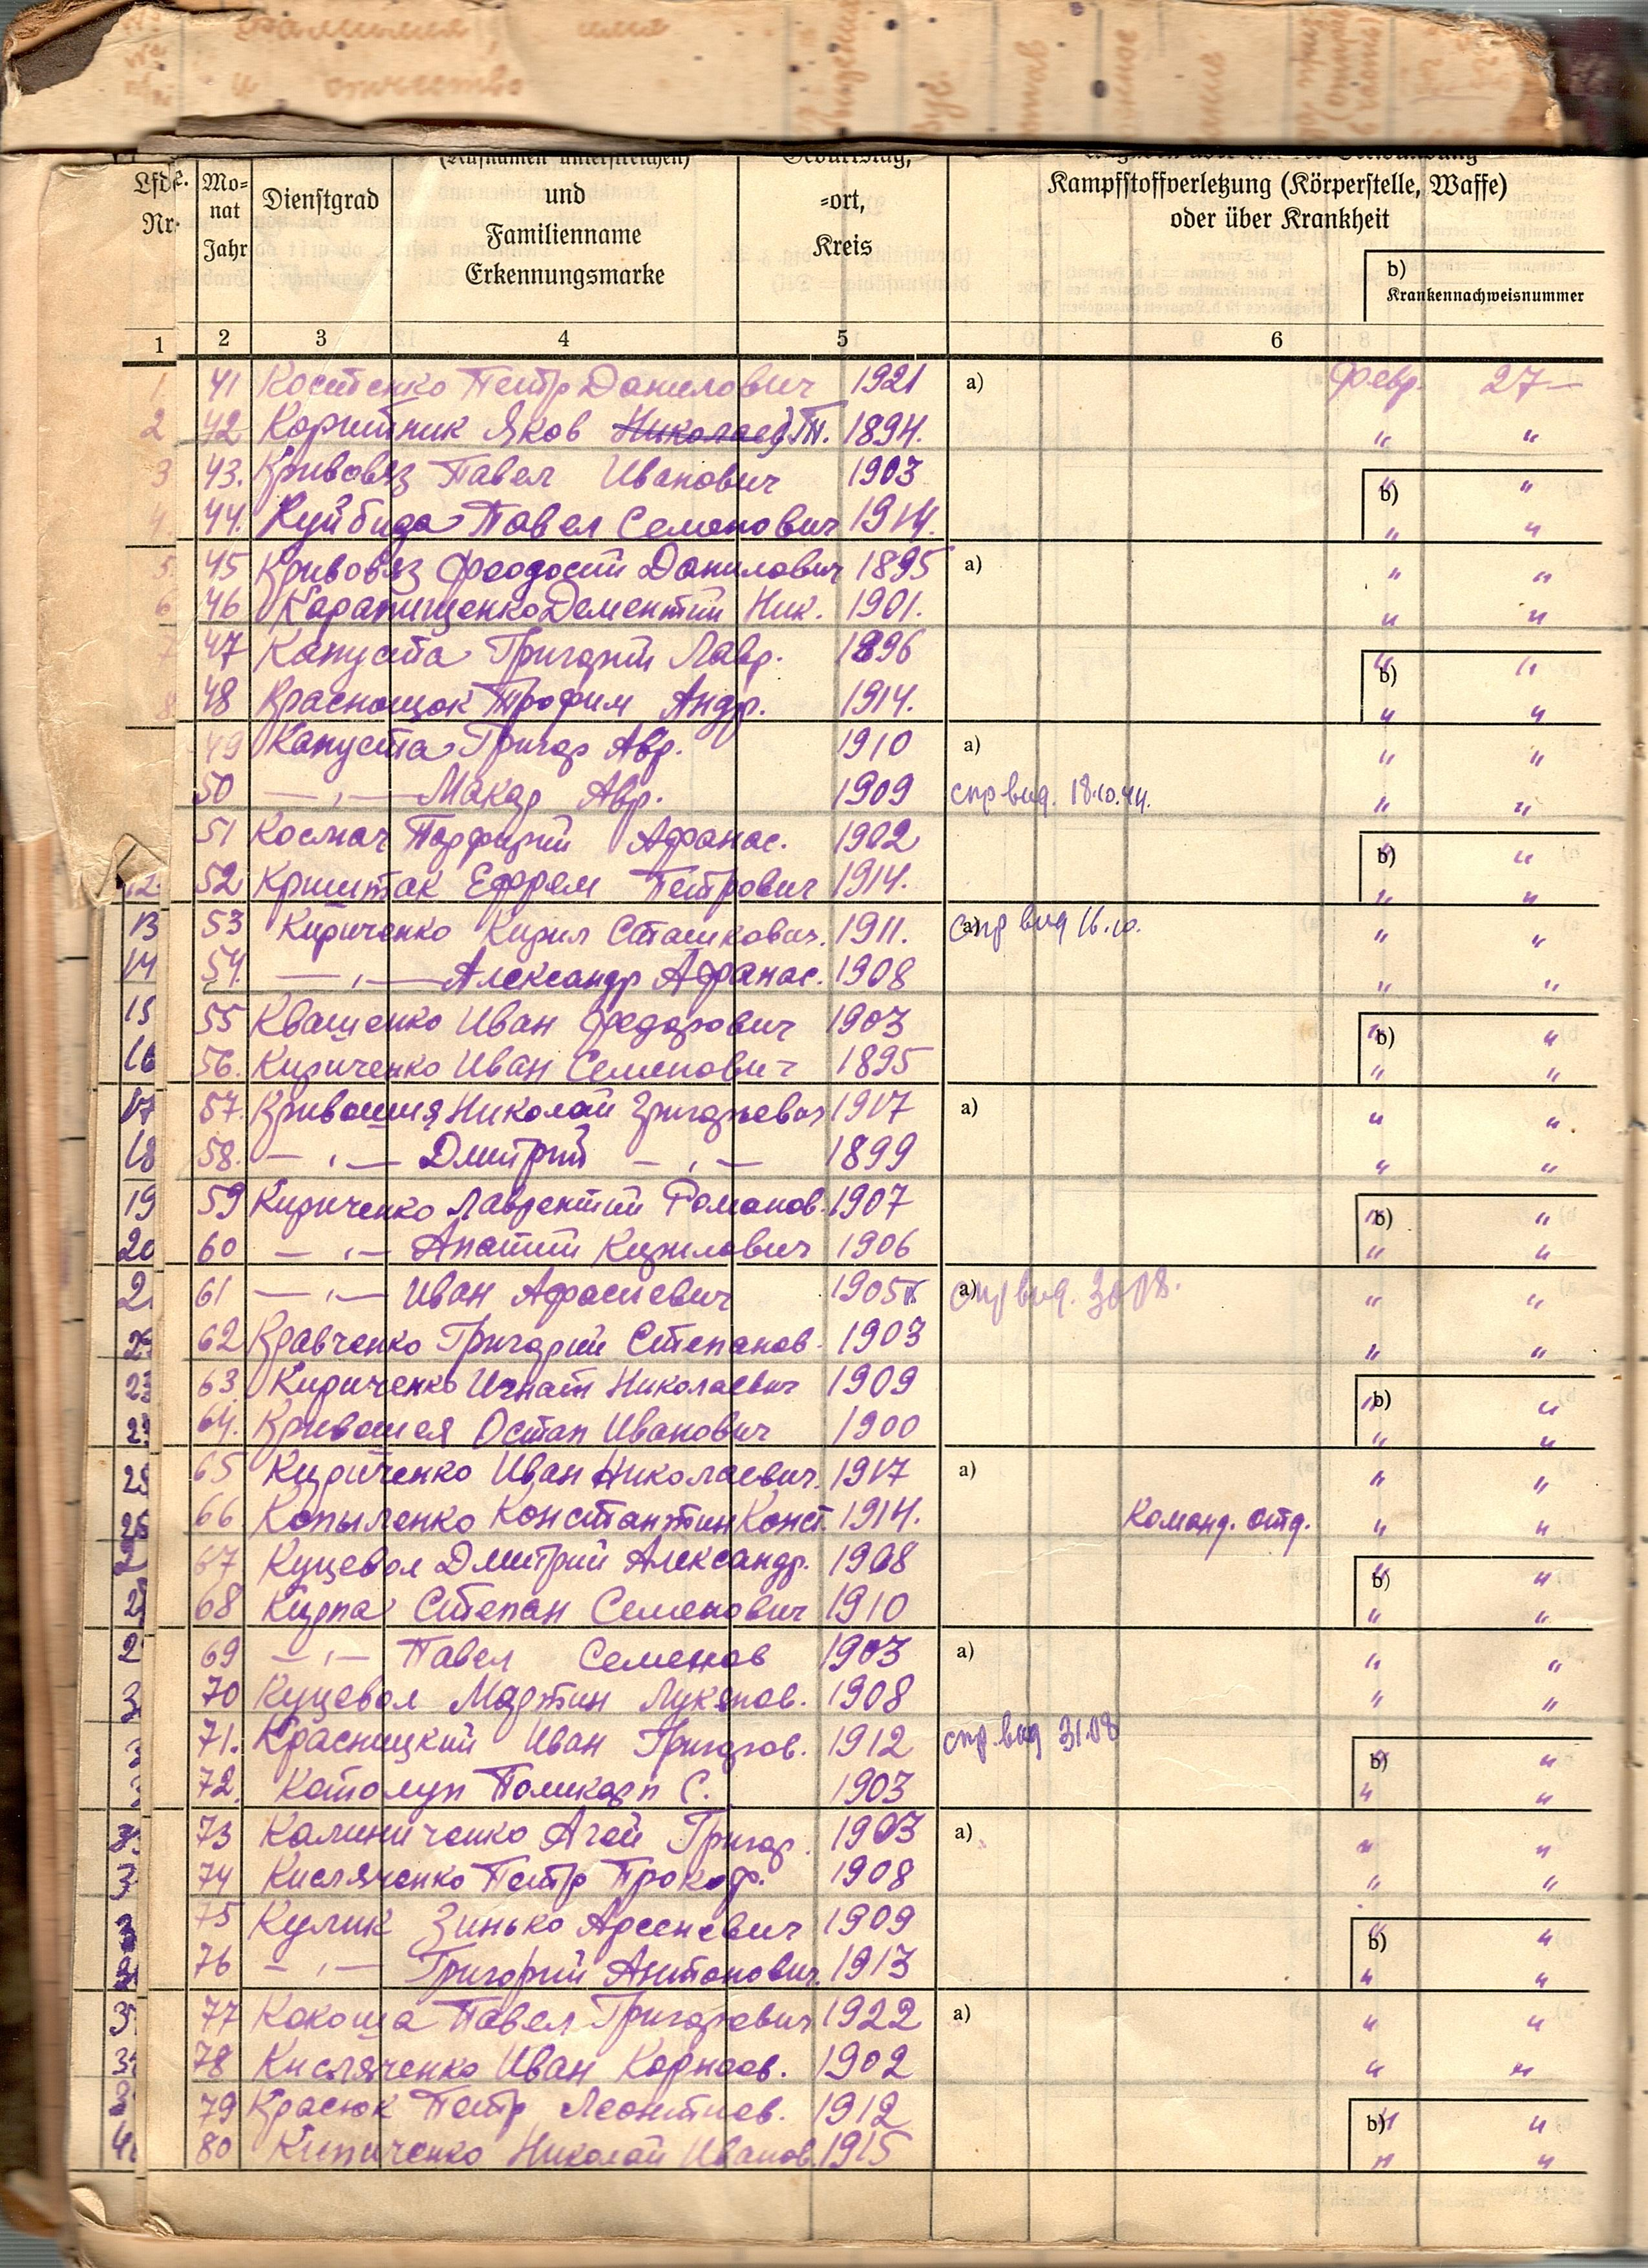 фамилия, имя
и отчество
(Rufnamen unterstreichen)
Geburtstag,
Lfde. Nr.
Mo-
nat
Jahr
Dienstgrad
und
Familienname
Erkennungsmarke
-ort,
Kreis
Kampfstoffverletzung (Körperstelle, Waffe)
oder über Krankheit
b)
Krankennachweisnummer
1 2 3 4 5 6
1 41 Костенко Петр Данилович 1921 a) Февр. 27 —
2 42 Коритник Яков Николаев Т. 1894. " "
3 43. Кривовяз Павел Иванович 1903 b) " "
4 44. Куйбида Павел Семенович 1914. " "
5 45 Кривовяз Феодосий Данилович 1895 a) " "
6 46 Карапищенко Дементий Ник. 1901. " "
7 47 Капуста Григорий Лавр. 1896 b) " "
8 48 Краснощок Трофим Андр. 1914. " "
49 Капуста Григор Авр. 1910 a) " "
50 — " — Макар Авр. 1909 спр вид. 18.10.44. " "
51 Космач Порфирий Афанас. 1902 b) " "
12. 52 Криштак Ефрем Петрович 1914. " "
13 53 Кириченко Кирил Сташкович. 1911. a) спр вид 16.10. " "
14 54. — " — Александр Афанас. 1908 " "
15 55 Квашенко Иван Федорович 1903 b) " "
16 56. Кириченко Иван Семенович 1895 " "
17 57. Кривошия Николай Григорьевич 1917 a) " "
18 58. — " — Дмитрий — " — 1899 " "
19 59 Кириченко Лаврентий Романов. 1907 b) " "
20 60 — " — Ипатий Кирилович 1906 " "
2 61 — " — Иван Афасиевич 1905 a) спр вид. 30.08. " "
62 Кравченко Григорий Степанов. 1903 " "
23 63 Кириченко Игнат Николаевич 1909 b) " "
64. Кривошея Остап Иванович 1900 " "
65 Кириченко Иван Николаевич. 1917 a) " "
26 66 Копыленко Константин Конст. 1914. Команд. отд. " "
67 Куцевол Дмитрий Александр. 1908 b) " "
2 68 Кирпа Степан Семенович 1910 " "
2 69 — " — Павел Семенов 1903 a) " "
3 70 Куцевол Мартин Лукянов. 1908 " "
71. Красницкий Иван Григоров. 1912 спр. вид 31.08 b) " "
72. Католуп Поликарп С. 1903 " "
73 Калиниченко Агей Григор. 1903 a) " "
3 74 Кисляченко Петр Прокоф. 1908 " "
75 Кулик Зинько Арсеневич 1909 b) " "
76 — " — Григорий Антонович. 1913 " "
3 77 Кокоша Павел Григорович 1922 a) " "
3 78 Кисляченко Иван Корнеев. 1902 " "
79 Красюк Петр Леонтиев. 1912 b) " "
4 80 Кириченко Николай Иванов. 1915 " "